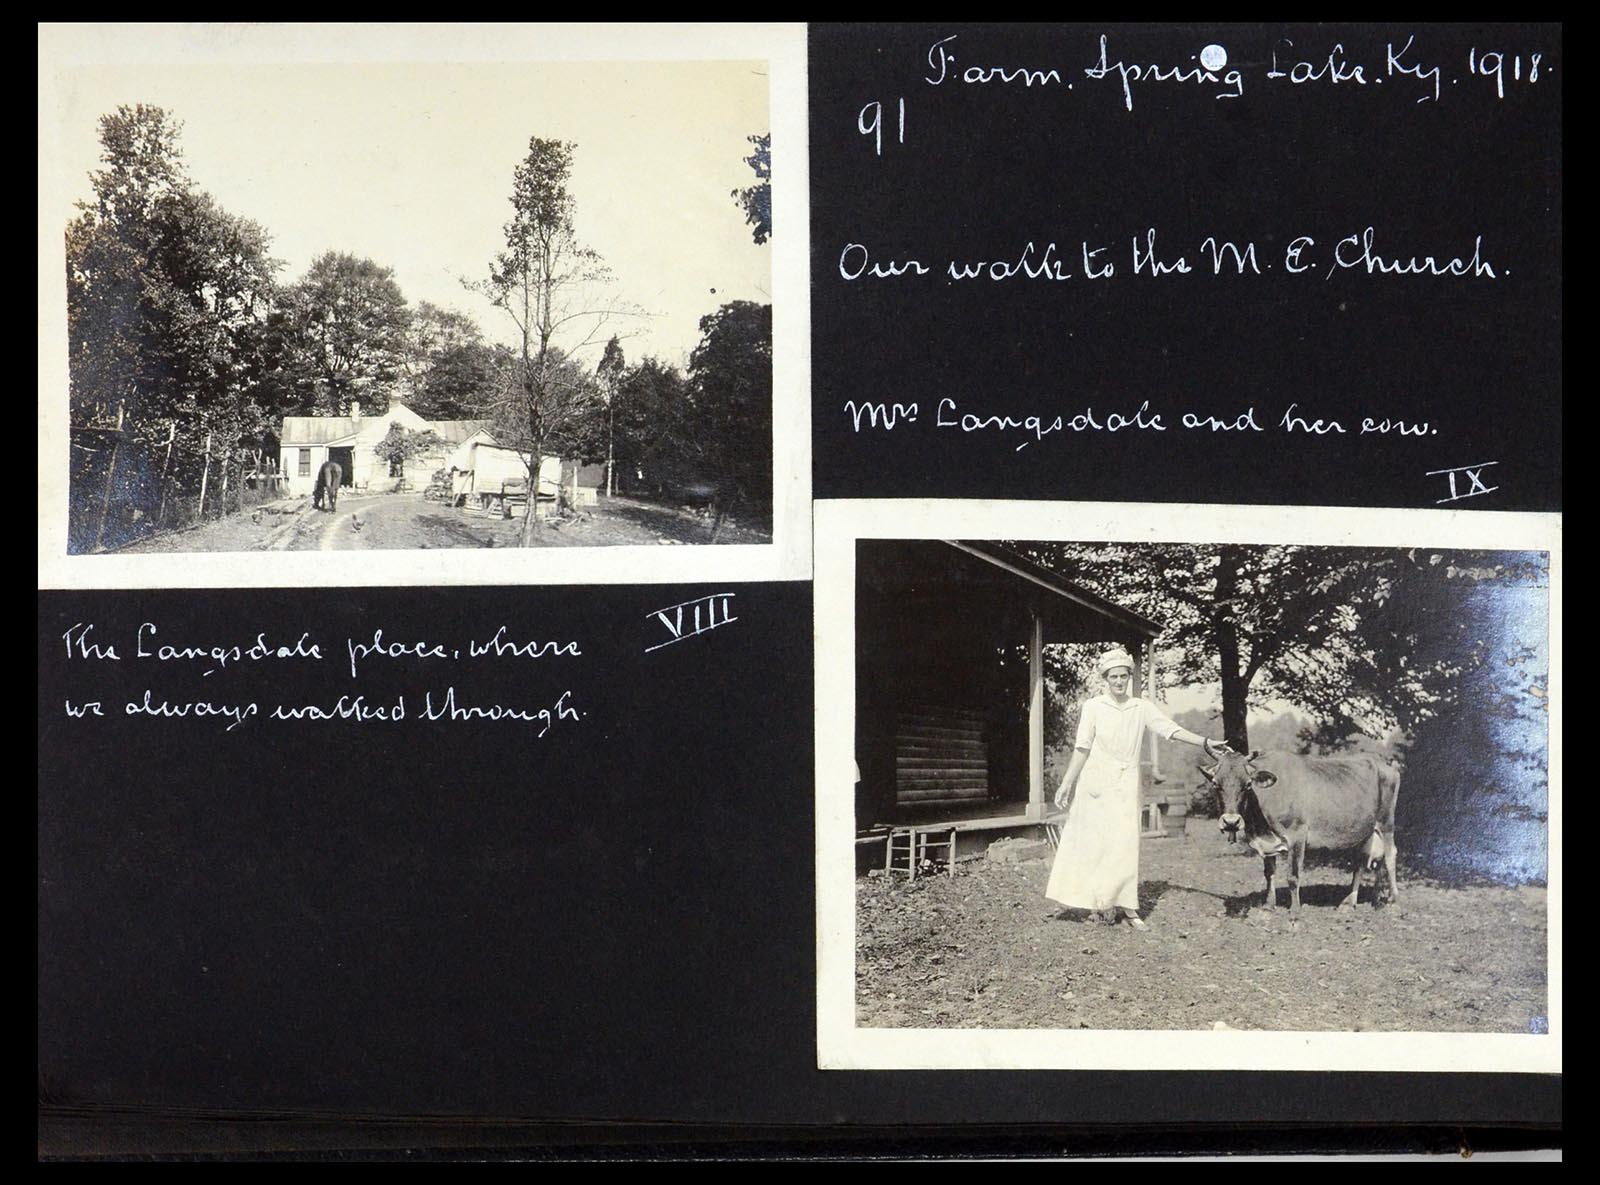 Farm. Spring Lake. Ky. 1918.
91
Our walk to the M. E. Church.
Mrs Langsdale and her cow.
IX
VIII
The Langsdale place, where
we always walked through.